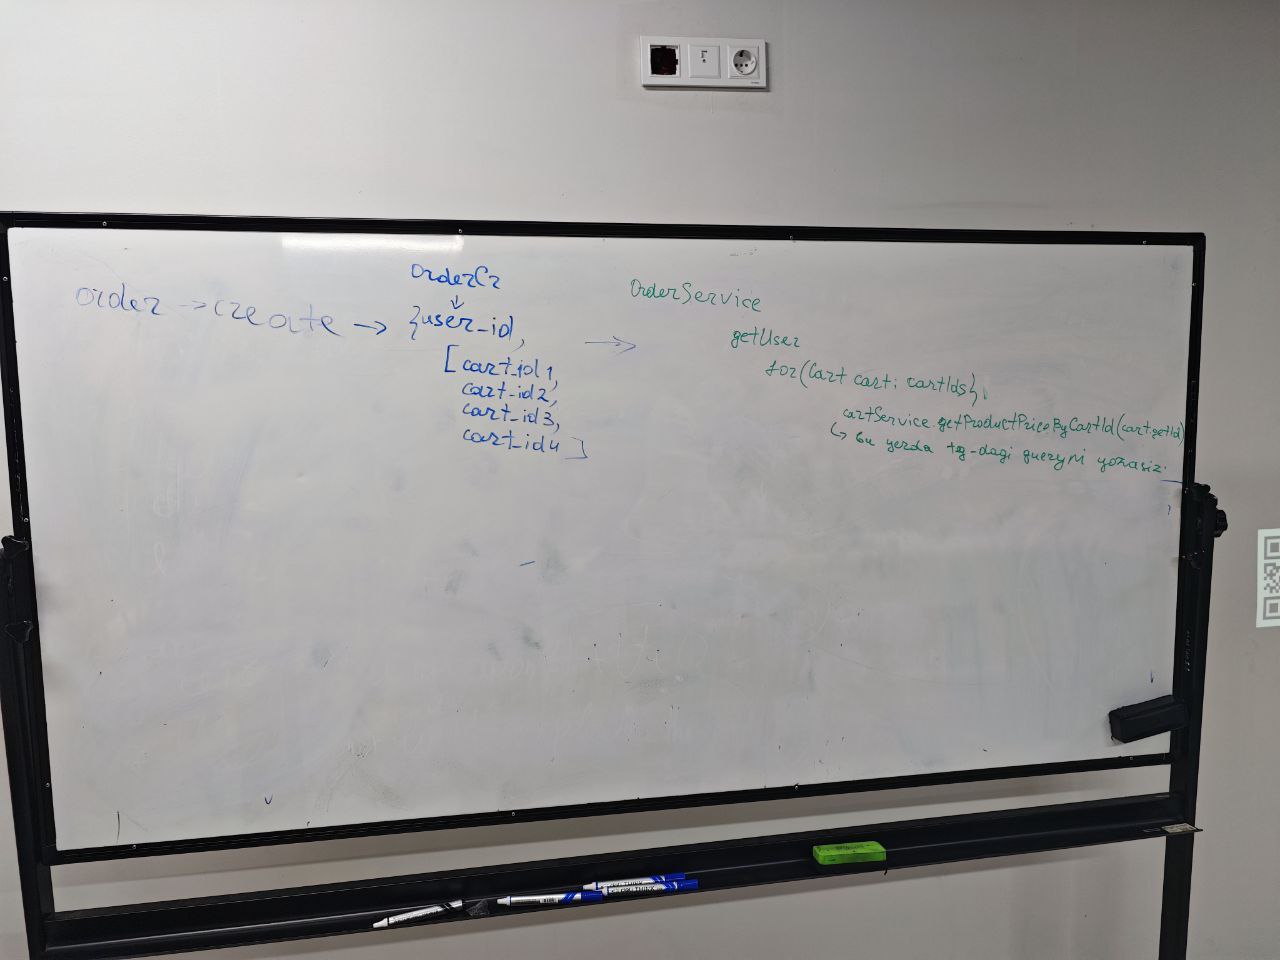 order -> create ->
OrderCr
↓
{user_id,
[cart_id1,
cart_id2,
cart_id3,
cart_id4]
->
OrderService
getUser
for(Cart cart: cartIds){
cartService.getProductPriceByCartId(cart.getId)
↳ bu yerda tg-dagi queryni yozasiz.